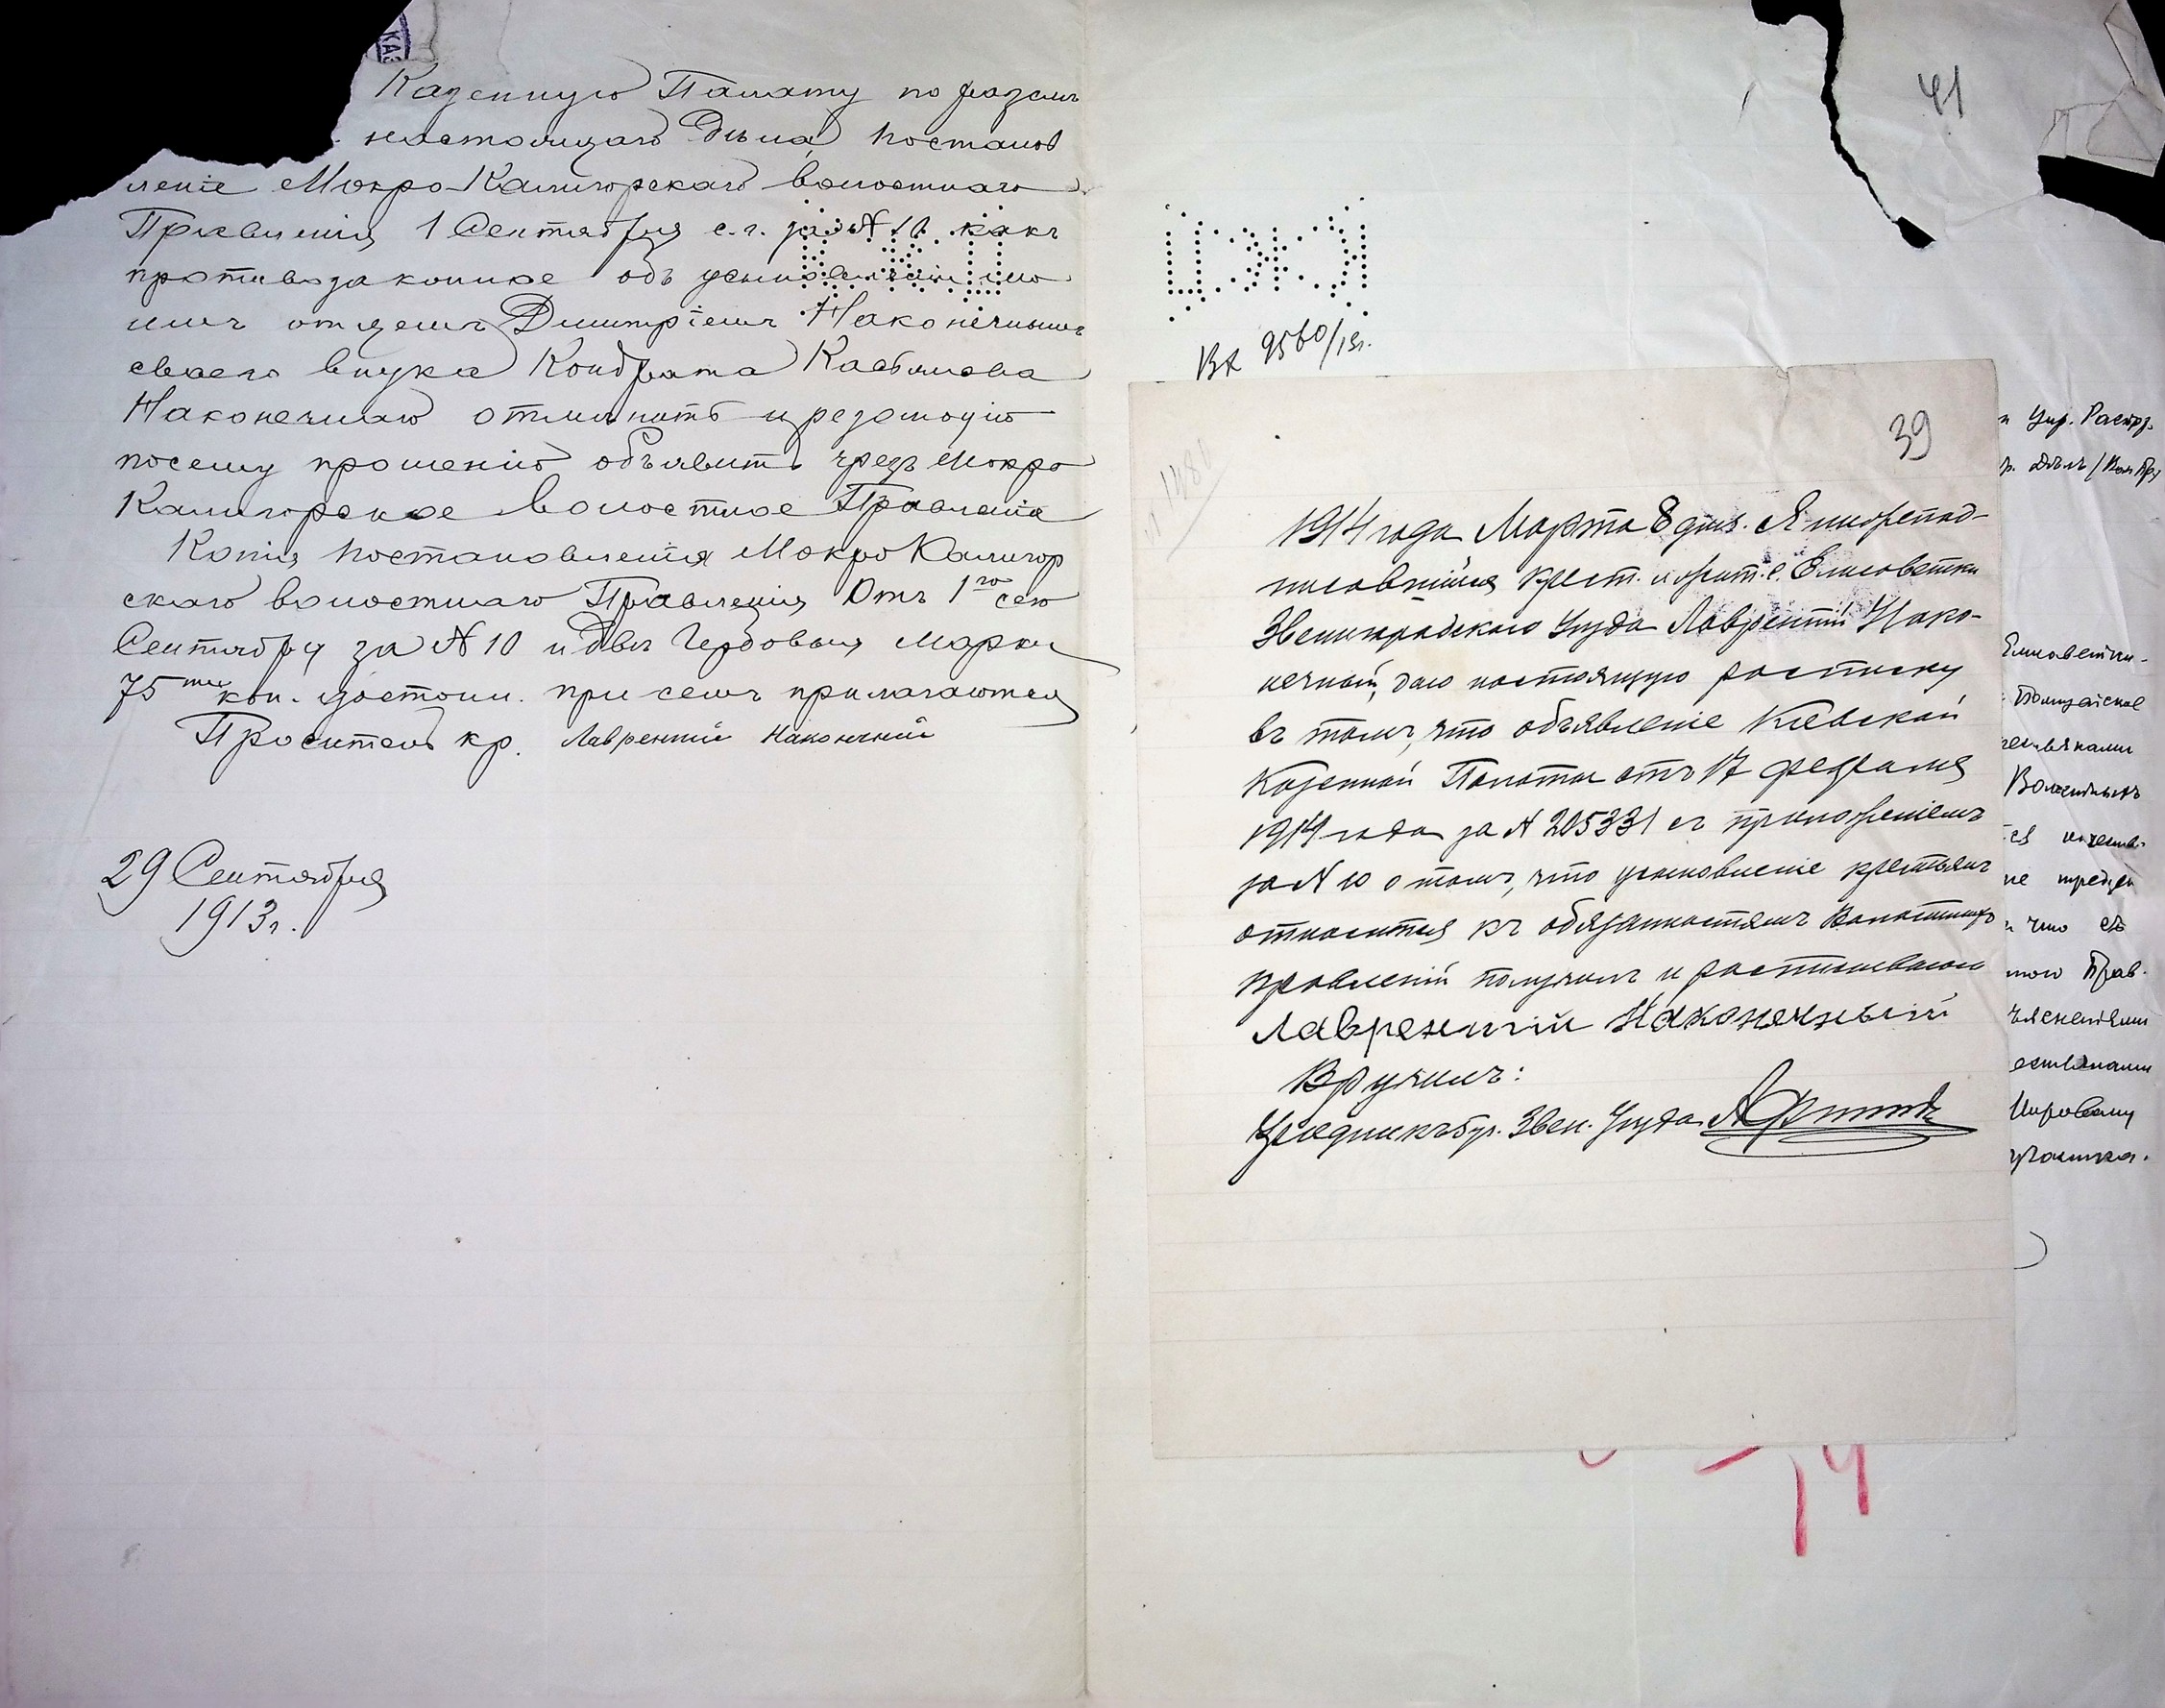 КАЗ
Казенную Палату по разсм
настоящаго дѣла, постанов
леніе Мокро-Калигорскаго волостнаго
Правленія 1 Сентября с.г. за № 10 какъ
противозаконное объ усыновленіи мо
имъ отцемъ Димитріемъ Наконечнымъ
своего внука Кондрата Касьянова
Наконечнаго отмѣнить и резолюцію
посему прошенію объявить чрезъ Мокро
Калигорское Волостное Правленіе
Копія постановленія Мокро Калигор
скаго волостнаго Правленія Отъ 1го сего
Сентября за № 10 и двѣ Гербовыя марки
75ти коп. достоин. при семъ прилагаются
Проситель кр. Лаврентій Наконечній
29 Сентября
1913 г.
41
Вх 9560/13г.
39
1914 года Марта 8 дня. Я нижепод-
писавшійся крест. и жит. с. Елисаветки
Звенигородскаго Уѣзда Лаврентій Нако-
нечный, даю настоящую росписку
въ томъ, что объявленіе Кіевской
Казенной Палаты отъ 17 февраля
1914 года за № 205331 съ приложеніемъ
за № 10 о томъ, что усыновленіе крестьянъ
относится къ обязанностямъ Волостныхъ
правленій получилъ и расписываюсь
Лаврентій Наконечный
Вручилъ:
Урядникъ 5 уч. Звен. Уѣзда
Упр. Распор.
Дѣлъ / Вол Пр
Елисаветки-
Полицейское
Волостныхъ
что съ
Прав.
Мировому
участка.